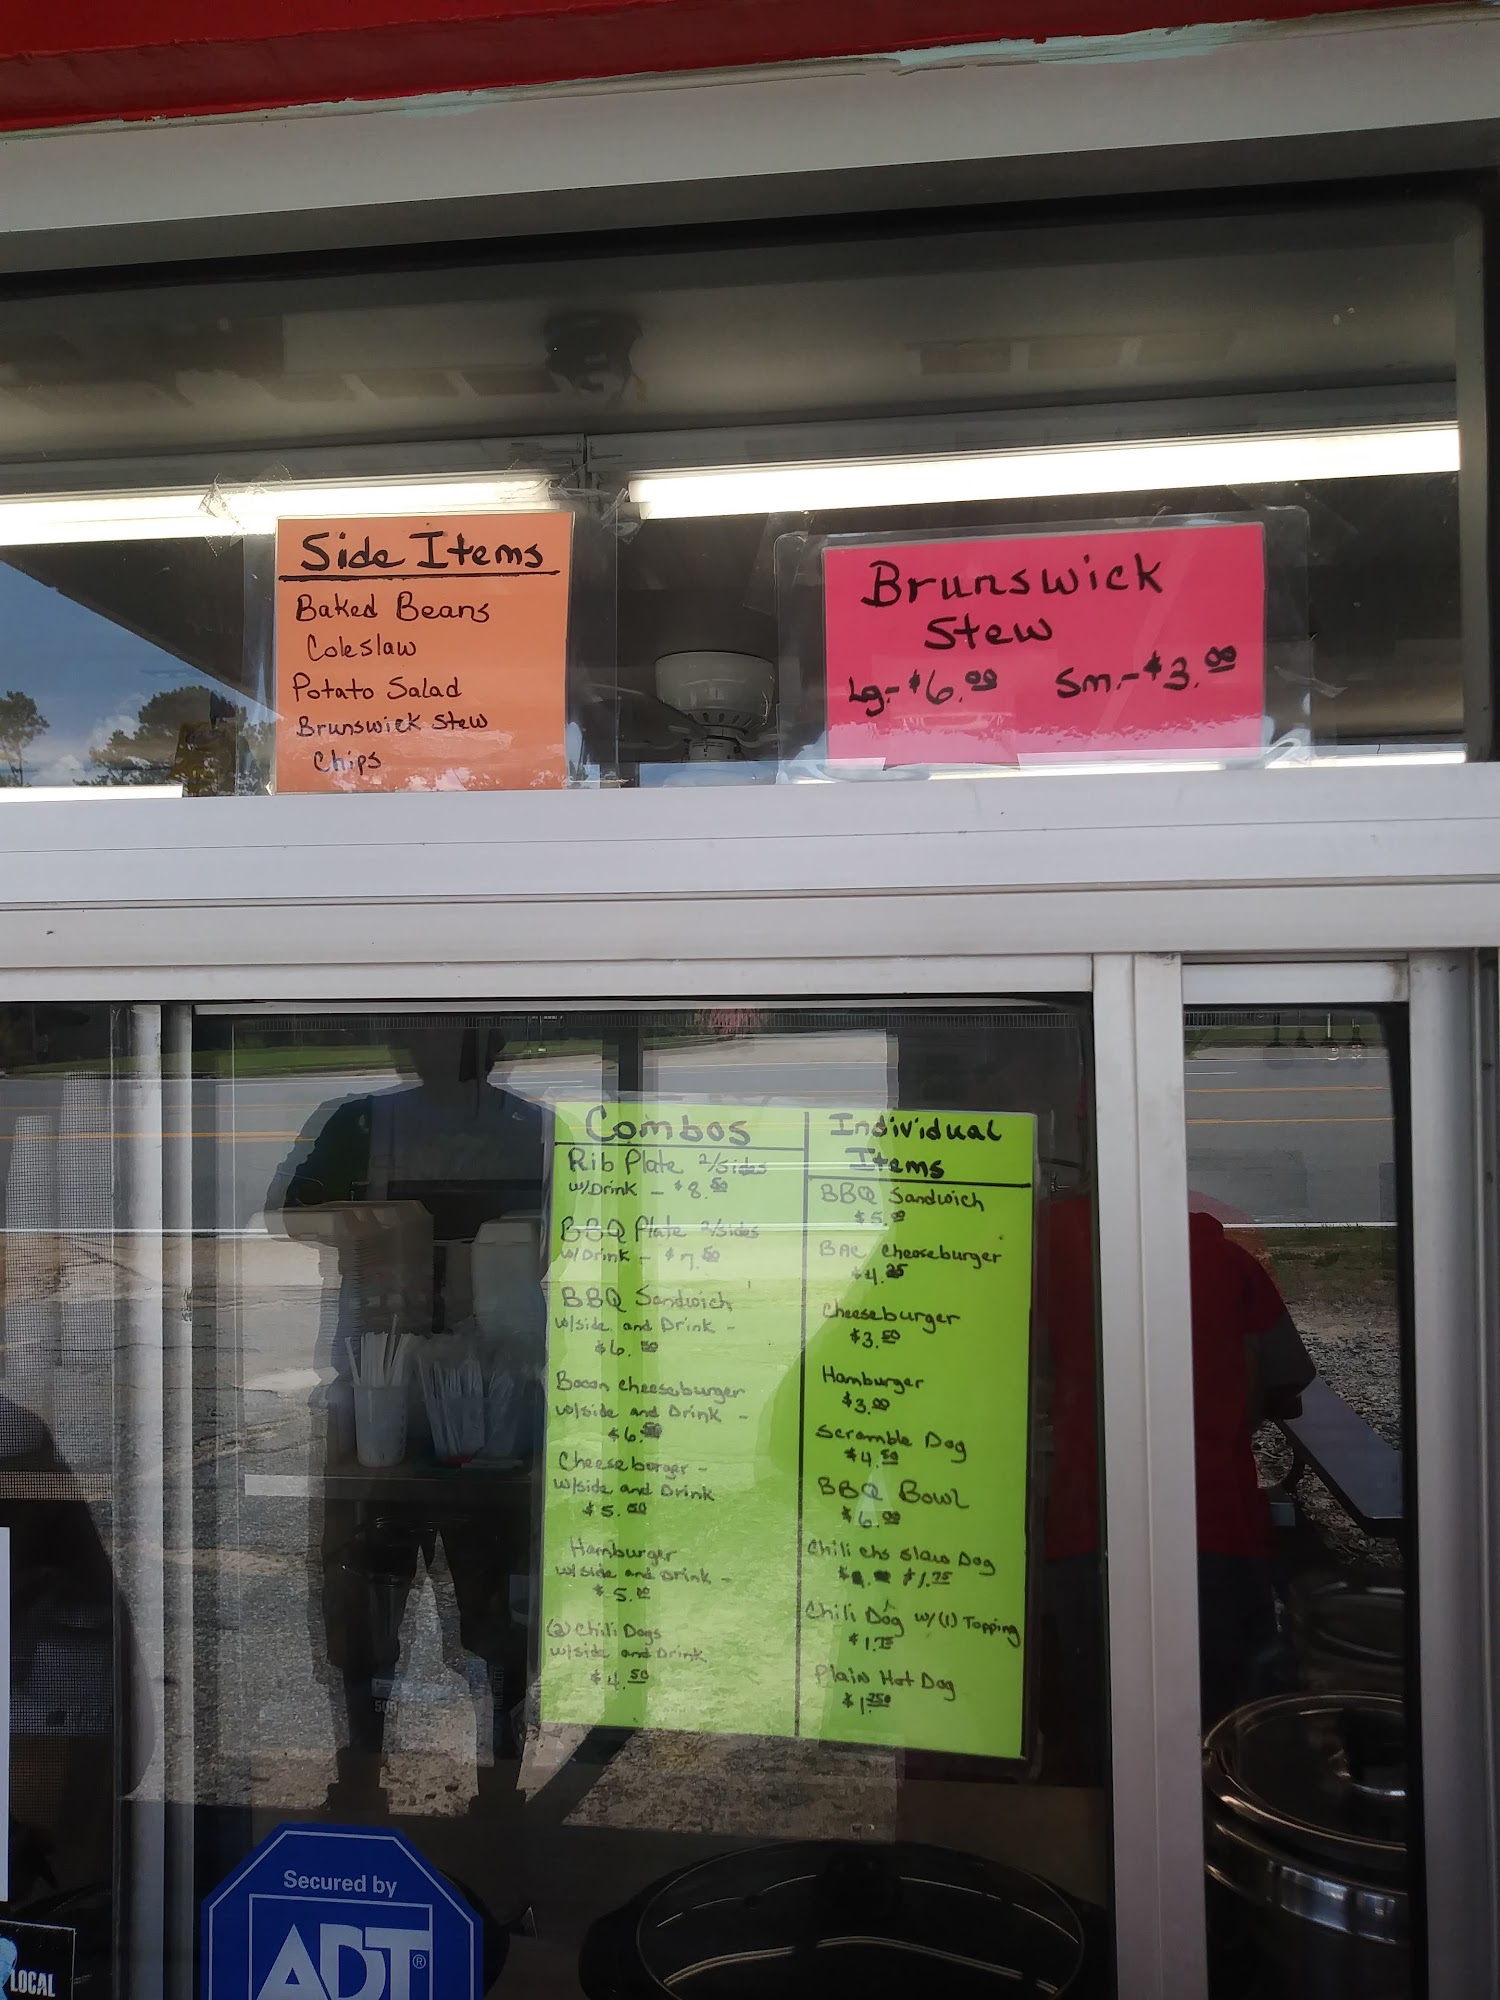 Side Items
Baked Beans
Coleslaw
Potato Salad
Brunswick Stew
Chips
Brunswick
Stew
Lg-$6.00 Sm.-$3.00
Combos
Rib Plate 2/sides
w/Drink - $8.50
BBQ Plate 2/sides
w/Drink - $7.50
BBQ Sandwich
w/side and Drink -
$6.50
Bacon cheeseburger
w/side and Drink -
$6.50
Cheeseburger -
w/side and Drink
$5.50
Hamburger
w/side and Drink -
$5.00
(2) Chili Dogs
w/side and Drink
$4.50
Individual
Items
BBQ Sandwich
$5.00
BAC cheeseburger
$4.25
Cheeseburger
$3.50
Hamburger
$3.00
Scramble Dog
$4.50
BBQ Bowl
$6.00
Chili chs slaw Dog
$1.75
Chili Dog w/(1) Topping
Plain Hot Dog
Secured by
ADT®
LOCAL